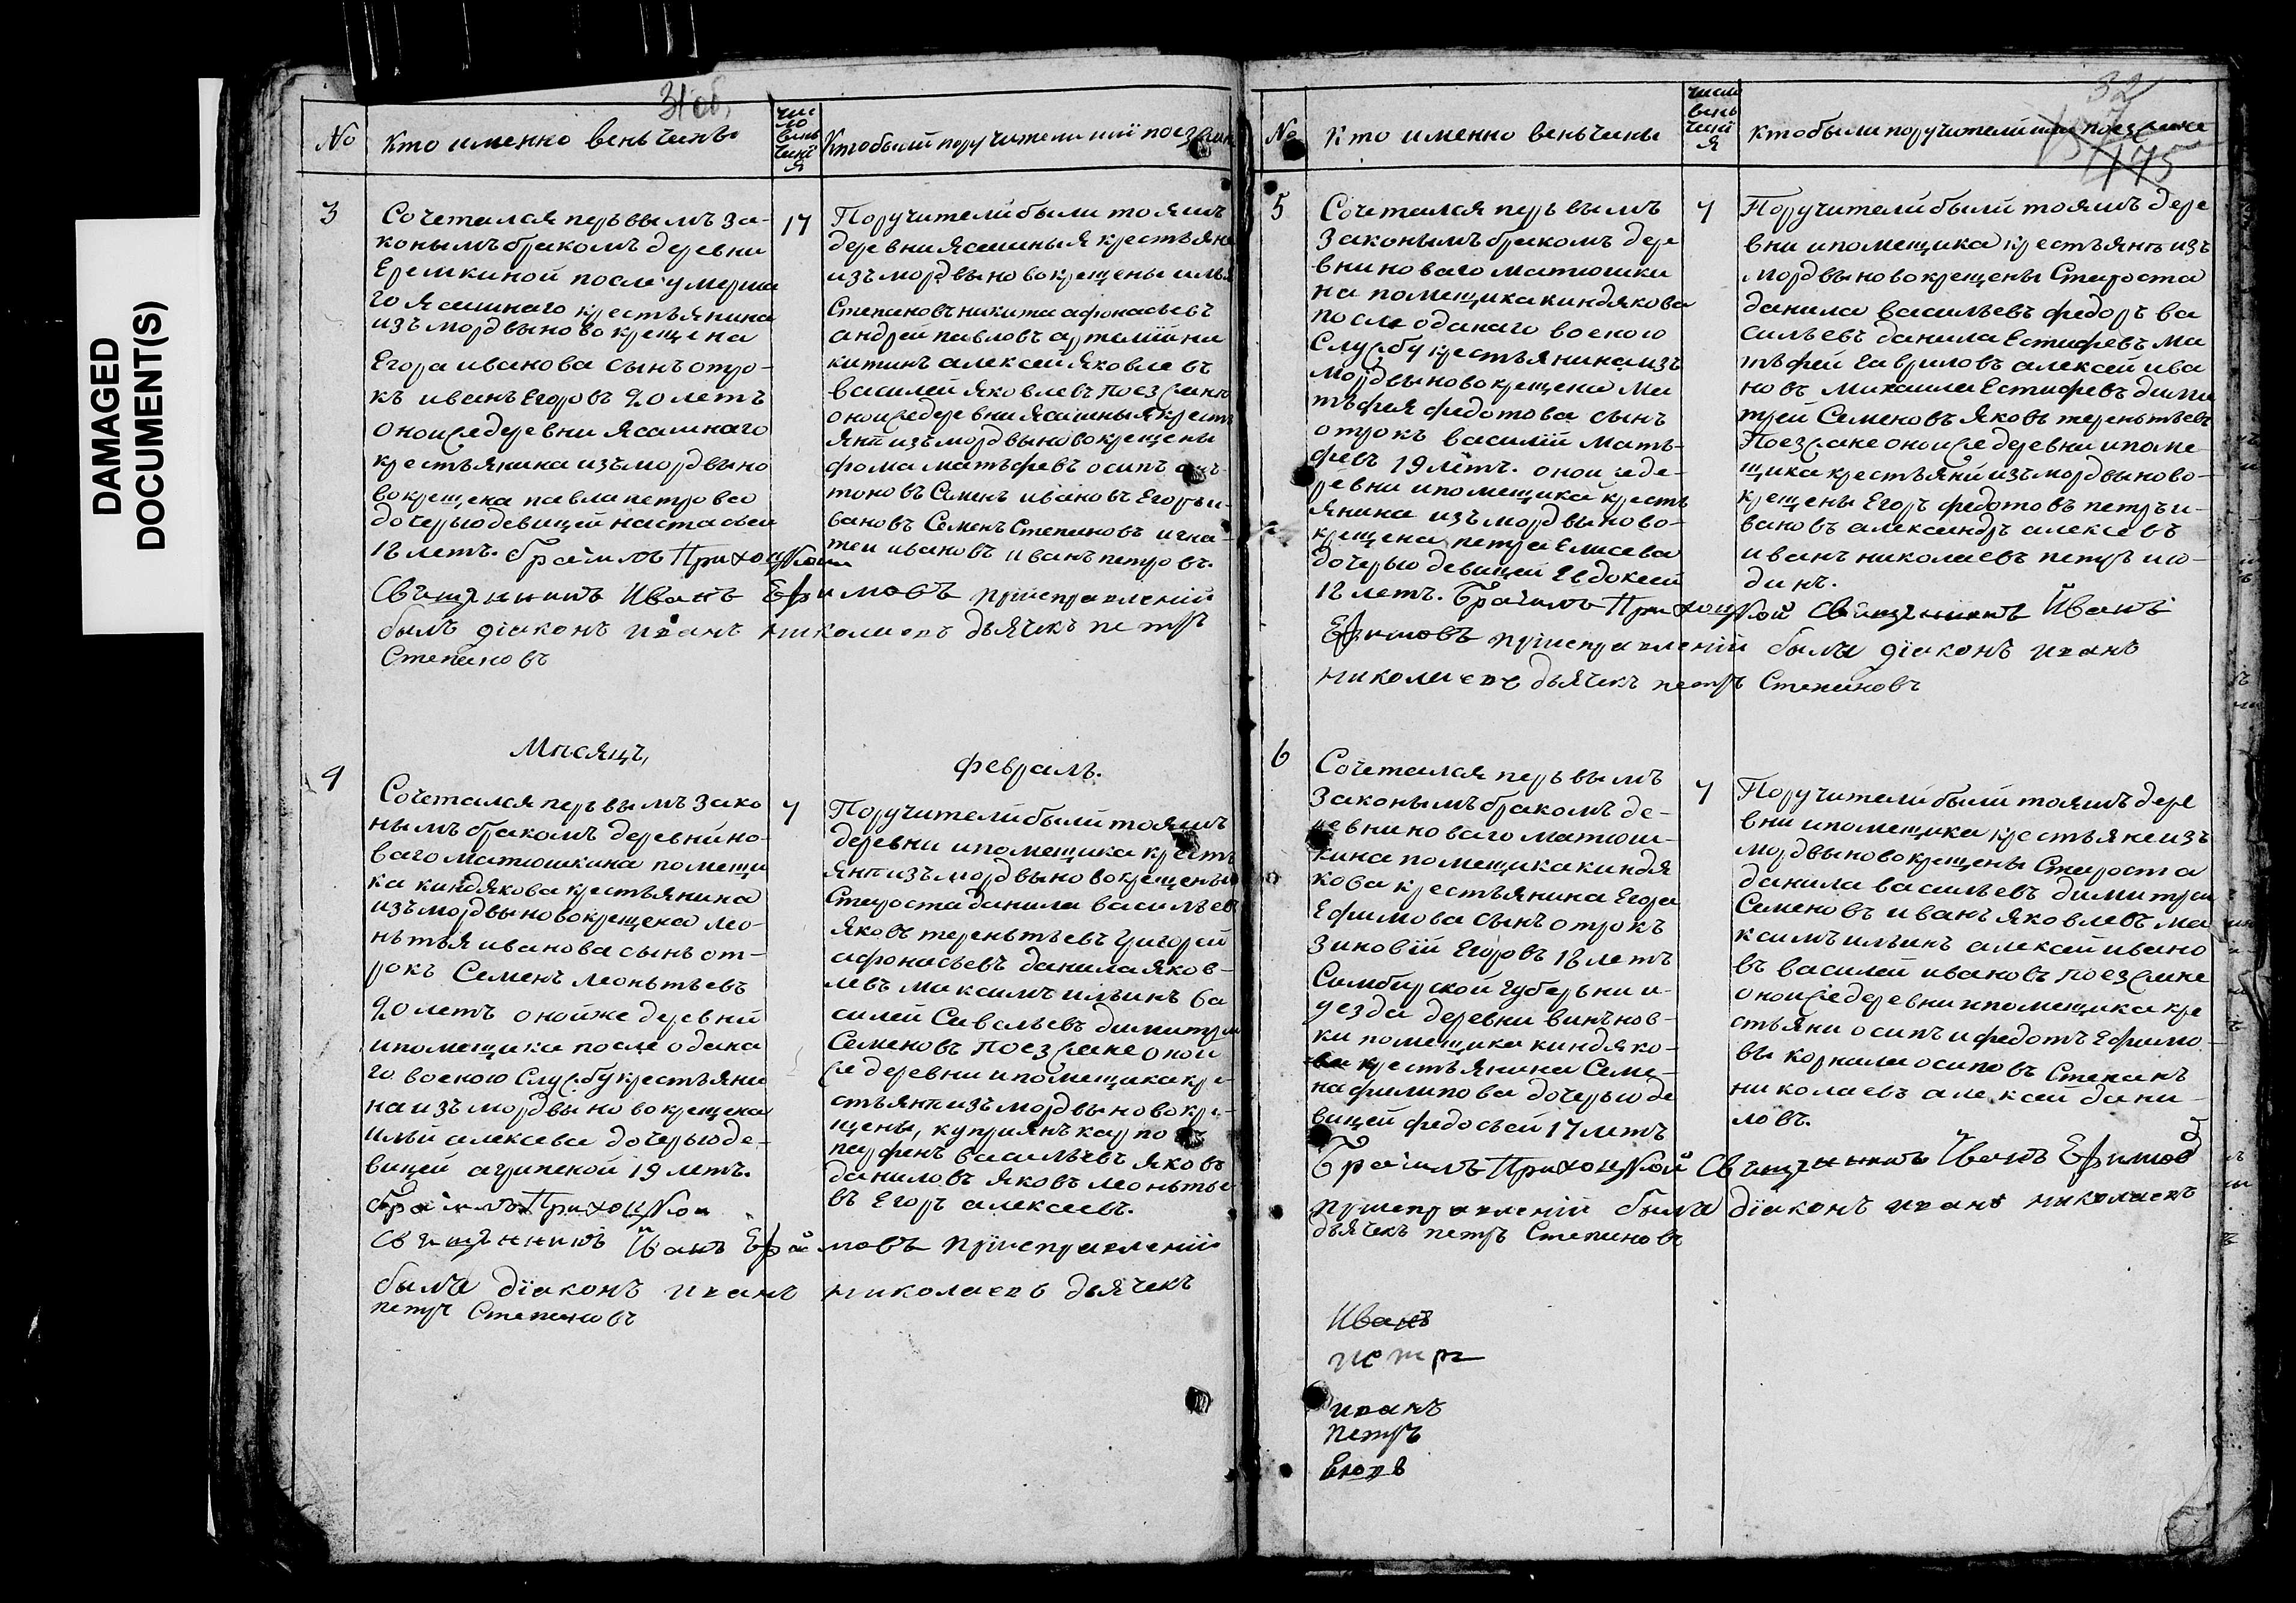 DAMAGED
DOCUMENT(S)
31 об.
No
Кто именно веньчаны
чис
ло
вень
чанї
я
Кто были поручители илї поезжан
3
Сочетался перьвымъ за-
конымъ бракомъ деревни
Еремкиной после умерша
го ясашнаго крестьянина
изъ мордвы новокрещена
Егора иванова сынъ отро-
къ иванъ Егоровъ 20 летъ
оной же деревни ясашнаго
крестьянина изъ мордвы но
вокрещена павла петрова
дочерью девицей настасьей
18 летъ. бракъ
Священникъ Иванъ Ефимовъ
былъ дїаконъ иванъ николаевъ дьячекъ петръ
Степановъ
17
Поручители были тояжъ
деревни ясашныя крестьяне
изъ мордвы новокрещены илья
Степановъ никита афонасьевъ
андрей павловъ артемїй ни
китинъ алексей яковлевъ
василей яковлевъ поезжане
оной же деревни ясашныя крестъ
яня изъ мордвы новокрещены
фома матьфевъ осипъ ан
тоновъ Семенъ ивановъ Егоръ и-
вановъ Семенъ Степановъ игна-
тей ивановъ иванъ петровъ.
Месяцъ,
февраль.
4
Сочетался перьвымъ зако
нымъ бракомъ деревни но-
ваго матюшкина помещи
ка киндякова крестьянина
изъ мордвы новокрещена лео-
нтья иванова сынъ от-
рокъ Семенъ леонтьевъ
20 летъ оной же деревни
и помещика после отдана
го военою службу крестьяни
на изъ мордвы новокрещена
ильи алексева дочерью де-
вицей агрипеной 19 летъ.
Священникъ Иванъ Ефимовъ
былъ дїаконъ иванъ николаевъ дьячекъ
петръ Степановъ
7
Поручители были тояжъ
деревни и помещика крестъ
яня изъ мордвы новокрещены
Староста данила васильевъ
яковъ тереньтьевъ григорей
афонасьевъ данила яков-
левъ максимъ ильинъ ва
силей Савельевъ димитрей
Семеновъ поезжане оной
же деревни и помещика кре-
стьяня изъ мордвы новокре-
щены, куприянъ карповъ
парфенъ васильевъ яковъ
даниловъ яковъ леоньтье
въ Егоръ алексеевъ.
32
175
No
Кто именно веньчаны
число
вень
чанї
я
Кто были поручители или поезжане
5
Сочетался перьвымъ
законымъ бракомъ дере
вни новаго матюшки
на помещика киндякова
после отданаго военою
Службу крестьянина изъ
мордвы новокрещена Ма
тьфея федотова сынъ
отрокъ василїй мать-
февъ 19 летъ. оной же де-
ревни и помещика кресть
янина изъ мордвы ново-
крещена петра Елисева
дочерью девицей Евдокеей
18 летъ. Священникъ Иванъ
Ефимовъ были дїаконъ иванъ
николаевъ дьячекъ петръ Степановъ
7
Поручители были тояжъ дере
вни и помещика крестьяня изъ
мордвы новокрещены Староста
данила васильевъ федоръ ва
сильевъ данила Естифевъ ма
тьфей гавриловъ алексей ива
новъ михаила Естифевъ дими
трей Семеновъ яковъ тереньтьевъ
Поезжане оной же деревни и поме
щика крестьяни изъ мордвы ново-
крещены Егоръ федотовъ петръ и-
вановъ александръ алексевъ
иванъ николаевъ петръ ию-
динъ.
6
Сочетался перьвымъ
законымъ бракомъ де-
ревни новаго матюш-
кина помещика киндя
кова крестьянина Егора
Ефимова сынъ отрокъ
зиновїй Егоровъ 18 летъ
Симбирской губерьни и
уезда деревни винънов-
ки помещика киндяко-
ва крестьянина Семе-
на филипова дочерью де
вицей федосьей 17 летъ
Священникъ Иванъ Ефимовъ
были дїаконъ иванъ николаевъ
дьячекъ петръ Степановъ
7
Поручители были тояжъ дере
вни и помещика крестьяне изъ
мордвы новокрещены Староста
данила васильевъ димитрей
Семеновъ иванъ яковлевъ ма
ксимъ ильинъ алексей ивано
въ василей ивановъ поезжане
оной же деревни и помещика кре
стьяни осипъ и федотъ Ефимо
вы корнила осиповъ Степанъ
николаевъ алексей дани-
ловъ.
Иванъ
петръ
иванъ
Петръ